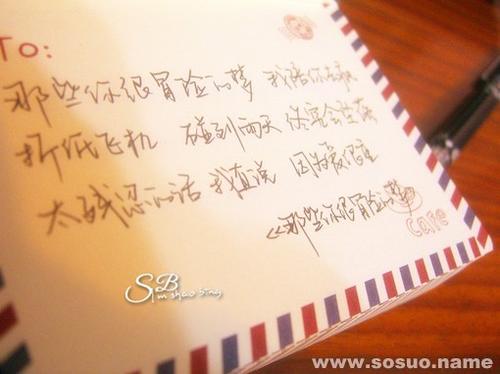 TO:
那些你很冒险的梦 我陪你去疯
折纸飞机 碰到雨天 终究会坠落
太残忍的话 我直说 因为爱很重
《那些你很冒险的梦》
Cafe
SB
im shao bing
www.sosuo.name